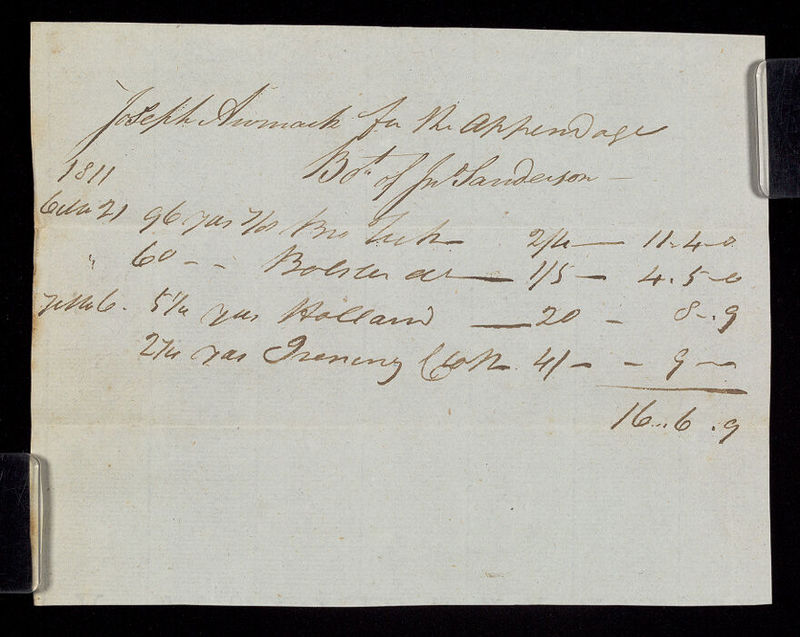 Joseph Awmack for the appendage
Bot. of Jno. Sanderson
1811
6 Mo 21 96 yds 7/8 Bro Tick 2/4 11.4.0
" 60 - - Bolster do 1/5 4.5.0
7 Mo 6. 5 1/4 yds Holland 20 8.9
2 1/4 yds Ironing Cloth 4/ 9
16..6.9